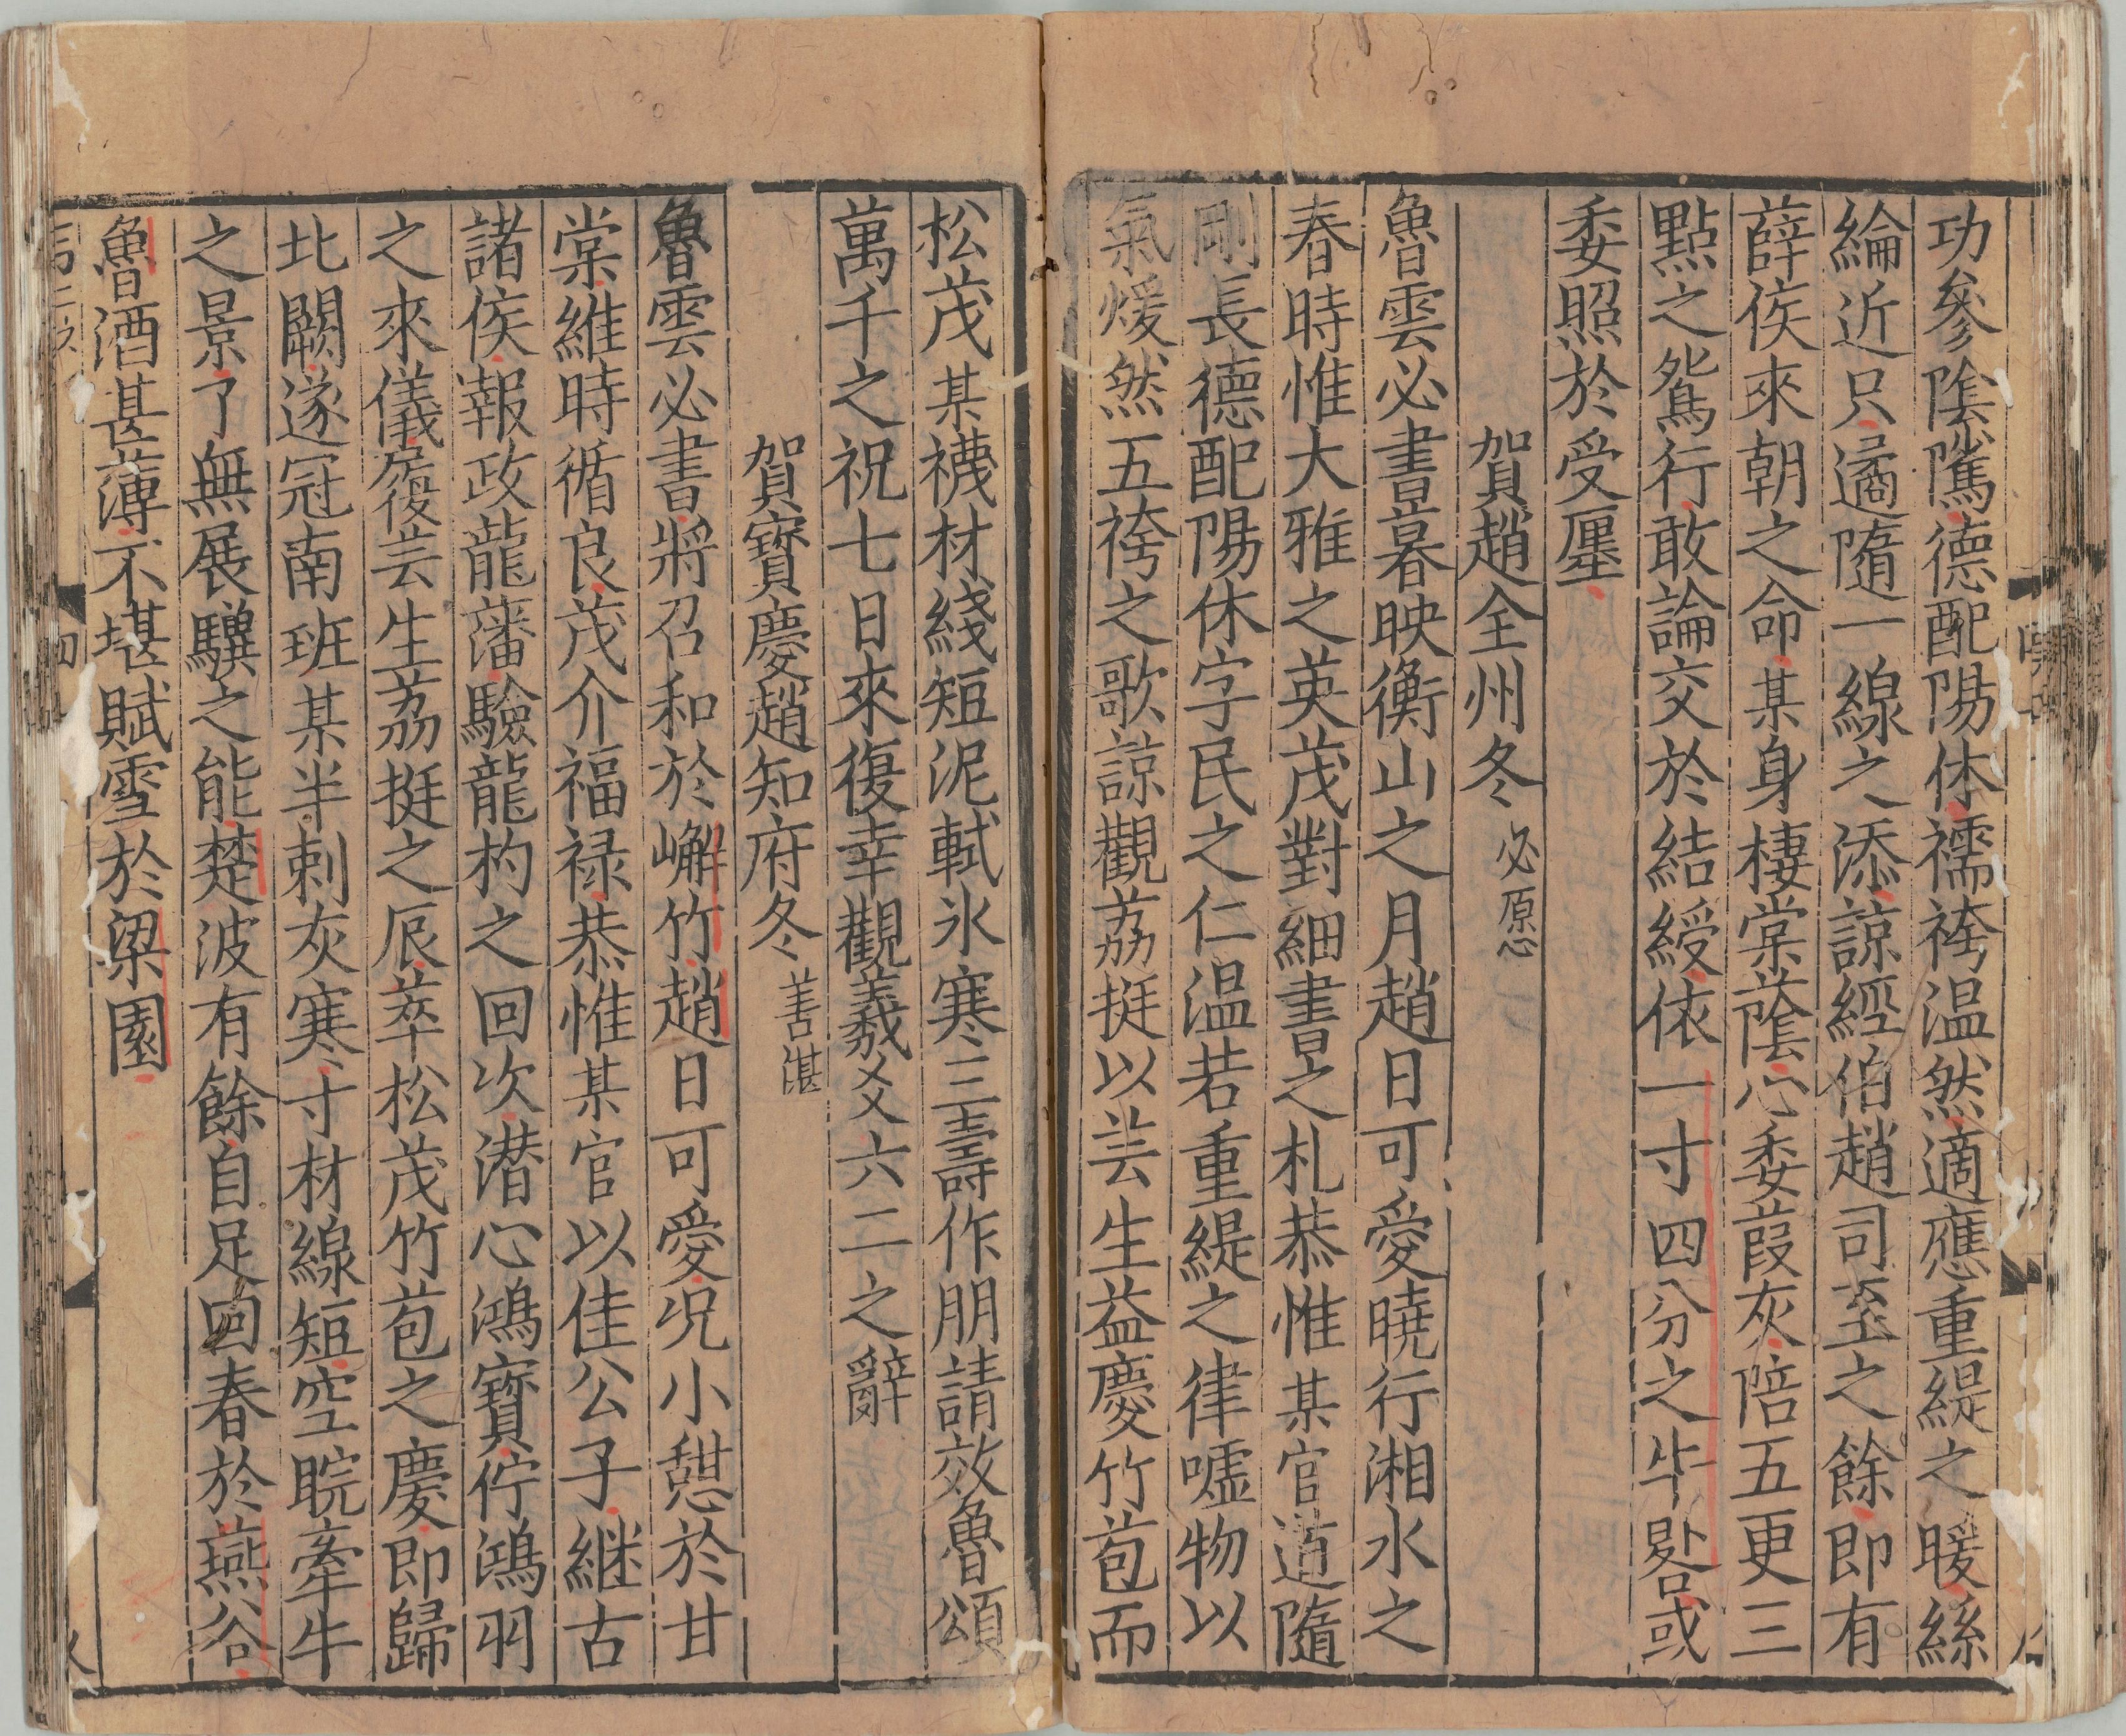 功參陰騭德配陽休襦袴温然適應重緹之暖絲
綸近只遹隨一線之添諒經伯趙司至之餘即有
薛侯來朝之命某身棲棠蔭心委葭灰陪五更三
點之鴛行敢論交於結綬依一寸四分之牛晷或
委照於受廛
賀趙全州冬 必愿
魯雲必書暮映衡山之月趙日可愛曉行湘水之
春時惟大雅之英茂對細書之札恭惟某官道隨
剛長德配陽休字民之仁温若重緹之律嘘物以
氣煖然五袴之歌諒觀荔挺以芸生益慶竹苞而
松茂某襪材綫短泥軾氷寒三壽作朋請效魯頌
萬千之祝七日來復幸觀羲爻六二之辭
賀寶慶趙知府冬 善湛
魯雲必書將召和於嶰竹趙日可愛况小憩於甘
棠維時循良茂介福禄恭惟某官以佳公子継古
諸侯報政龍藩驗龍杓之回次潜心鴻寶佇鴻羽
之來儀履芸生荔挺之辰萃松茂竹苞之慶即歸
北闕遂冠南班某半刺灰寒寸材線短空睆牽牛
之景了無展驥之能楚波有餘自足回春於燕谷
魯酒甚薄不堪賦雪於梁園